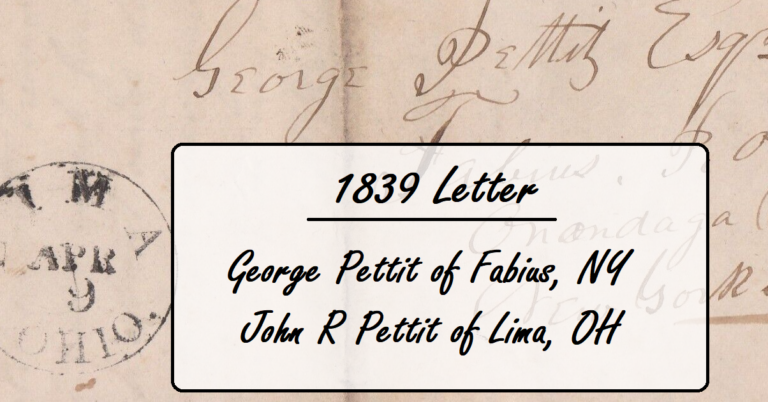 George Pettit Esqr
Fabius, Po
Onondaga
New York
IMA
APR
9
OHIO.
1839 Letter
George Pettit of Fabius, NY
John R Pettit of Lima, OH